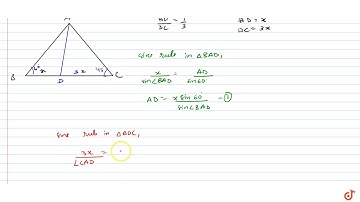 A
B 60° x D 3x 45° C
BD/DC = 1/3
BD = x
DC = 3x
Sine rule in △BAD,
x/sin∠BAD = AD/sin60°
AD = x sin 60°/sin∠BAD - ①
Sine rule in △ADC,
3x/∠CAD =